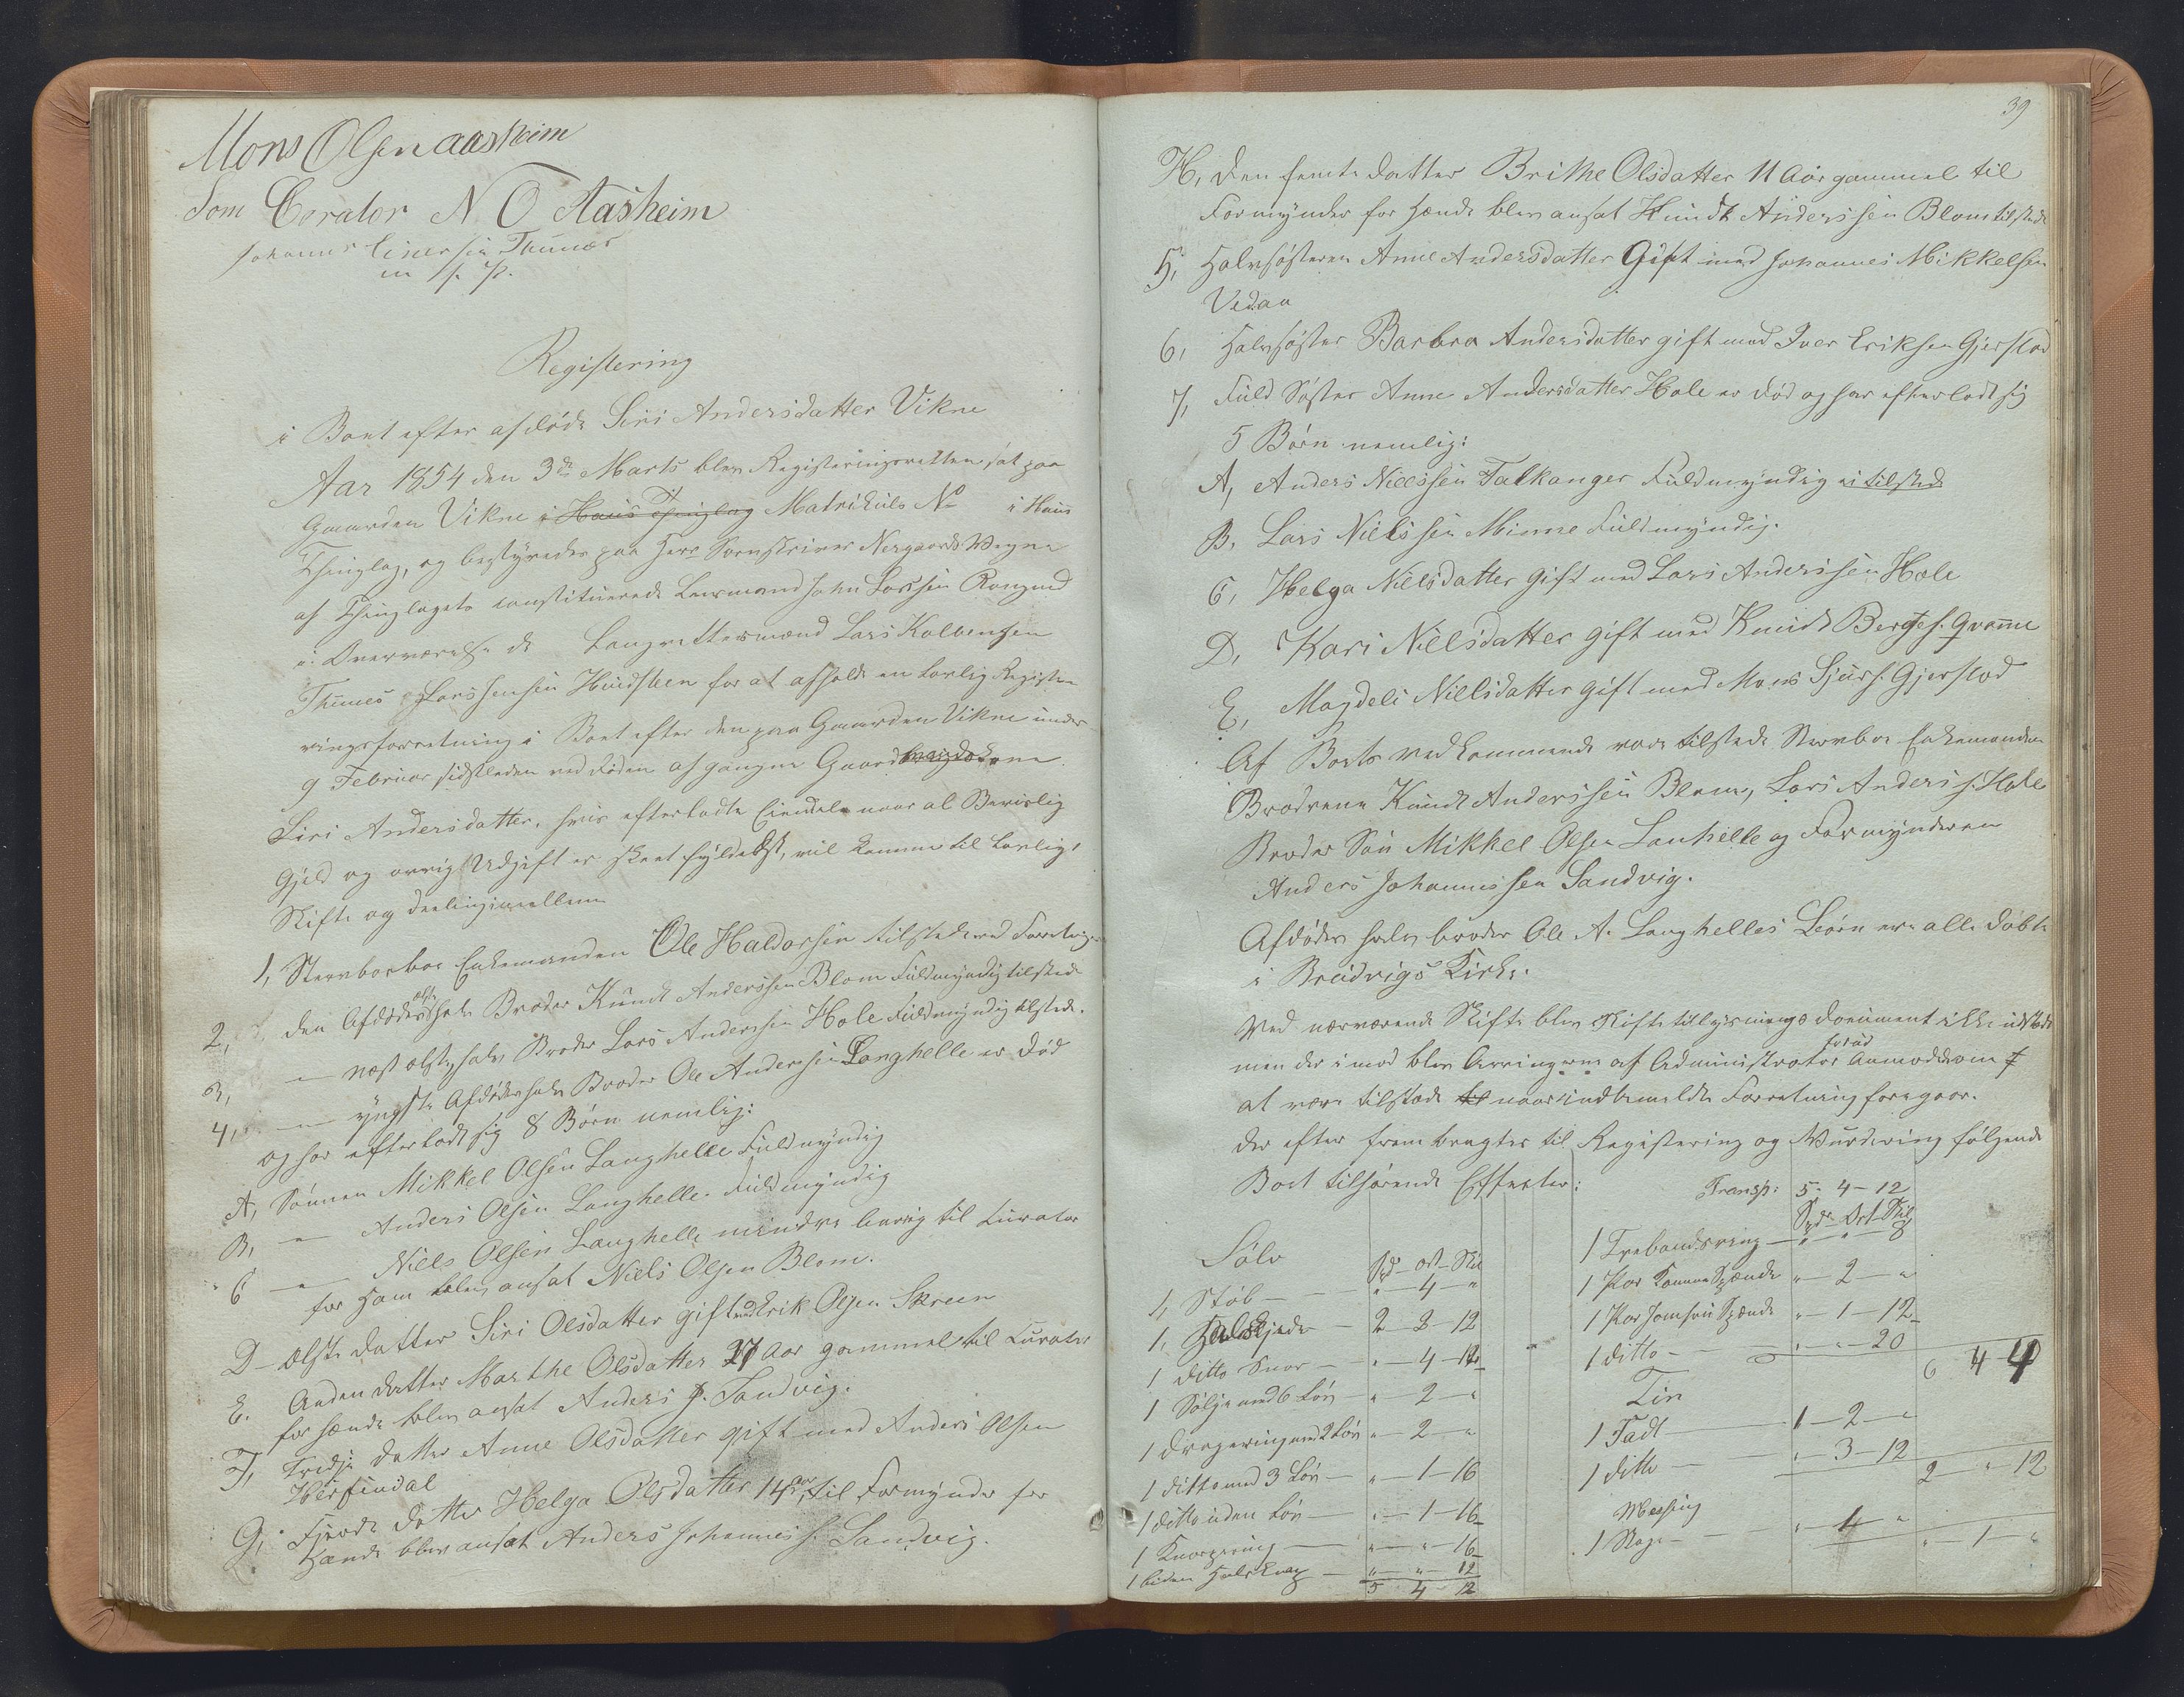 Mons Olsen Aasheim
Som Corator N O Aasheim
Johannes Einersen Thunes
m. f. P.
Registering
i Boet efter afdøde Siri Andersdatter Vikne
Aar 1854 den 3de Marts blev Registeringsretten sat paa
Gaarden Vikne i Haus Thinglag Matrikuls No i Haus
Thinglag, og bestyredes paa Herr Sorenskriver Nergaards Vegne
af Thinglagets constituerede Lensmand John Larssen
i Overværelse de Laugrettesmænd Lars Kolbensen
Thunes og Lars Jensen Hundsteen for at afholde en lovlig Registe
ringsforretning i Boet efter den paa Gaarden Vikne under
9 Februar sidstleden ved døden afgangne Gaardbrugerkone
Siri Andersdatter, hvis efterladte Eiendele naar al Bevislig
Gjeld og øvrig Udgift er skeet fyldest, vil komme til lovlig
Skifte og deeling imellem
1, Stervboe Enkemanden Ole Haldorsen tilstede ved Forretningen
2, den Afdødes ælste halv Broder Knudt Anderssen Blom Fuldmyndig tilstede
3, — næst ælste halv Broder Lars Anderssen Hole Fuldmyndig tilstede.
4, — yngste Afdødes halv Broder Ole Anderssen Langhelle er død
og har efterladt sig 8 Børn nemlig:
A, Sønnen Mikkel Olsen Langhelle Fuldmyndig
B, — Anders Olsen Langhelle Fuldmyndig
C — Niels Olsen Langhelle mindre aarig til Curator
for ham blev ansat Niels Olsen Blom.
D — Ælste datter Siri Olsdatter gift med Erik Olsen Skreen
E. Anden datter Marthe Olsdatter 27 Aar gammel til Curator
for hende blev ansat Anders J. Sandvig.
F, Tredje datter Anne Olsdatter gift med Anders Olsen
Herfindal
G, Fjerde datter Helga Olsdatter 14 aar, til Formynder for
hende blev ansat Anders Johannes s. Sandvig.
39
H, den femte datter Brithe Olsdatter 11 Aar gammel til
Formynder for hende blev ansat Knudt Anderssen Blom tilstede
5, Halvsøsteren Anne Andersdatter Gift med Johannes Mikkelsen
Vedaa
6, Halvsøster Barbra Andersdatter gift med Iver Eriksen Gjerstad
7, Fuld Søster Anne Andersdatter Hole er død og har efterladt sig
5 Børn nemlig:
A, Anders Nielssen Falkanger Fuldmyndig ei tilstede
B, Lars Nielssen Minne Fuldmyndig.
C, Helga Nielsdatter gift med Lars Anderssen Hole
D, Kari Nielsdatter gift med Knudt Berges. Qvame
E, Magdeli Nielsdatter gift med Mons Sjurs. Gjerstad
Af Boets vedkommende vare tilstede Stervboe Enkemanden
Brødrene Knudt Anderssen Blom, Lars Anders s. Hole
Broder Søn Mikkel Olsen Lanhelle og Formynderen
Anders Johannessen Sandvig.
Afdødes halv broder Ole A. Langhelles Børn ere alle døbte
i Breidvigs Kirke.
Ved nærværende Skifte blev Skifte tillysnings document ikke udstedt
men der imod blev Arvingerne af Administrator forud Anmodede om
at være tilstede til naar indbemeldte Forretning foregaar.
der efter frembragtes til Registering og Vurdering følgende
Boet tilhørende Effecter:
Sølv Spd — ort — Skil
1, Støb — " — 4 — "
1, Halskjede — 2 — 3 — 12
1 ditto Snor — " — 4 — 12
1 Sølje med 6 Løv — " 2 — "
1 Dragering med 2 Løv " — 2 — "
1 ditto med 3 Løv — " — 1 — 16
1 ditto uden Løv — " — 1 — 16
1 Knapring — " — " — 16
1 liden Halsknap — " — " — 12
5 4 12
Transp: 5 - 4 - 12
Spd — Ort — Skil
1 Trebandsring — " — " — 8
1 Par Spænde " — 2 — "
1 Par Spænde " — 1 — 12
1 ditto — " — " — 20
6 4 4
Tin
1 Fadt — 1 — 2 — "
1 ditto — " — 3 — 12
2 " 12
Messing
1 Stage — " — 1 "
" — 1 — "